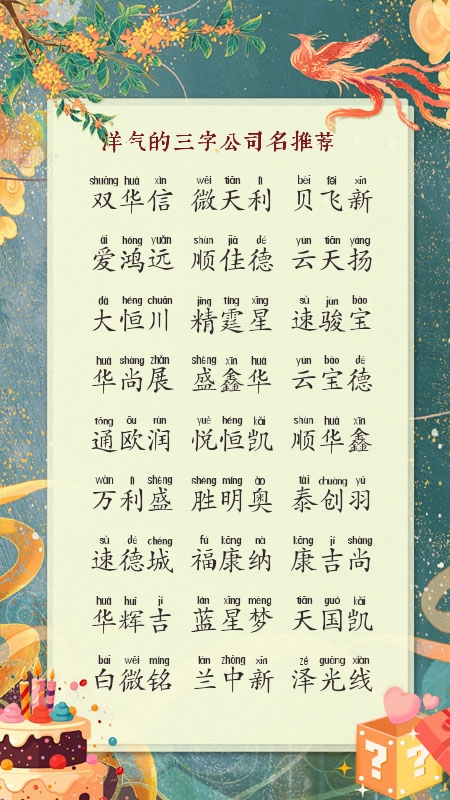 洋气的三字公司名推荐
shuāng huá xìn wēi tiān lì bèi fēi xīn
双华信 微天利 贝飞新
ài hóng yuǎn shùn jiā dé yún tiān yáng
爱鸿远 顺佳德 云天扬
dà héng chuān jīng tíng xīng sù jùn bǎo
大恒川 精霆星 速骏宝
huá shàng zhǎn shèng xīn huá yún bǎo dé
华尚展 盛鑫华 云宝德
tōng ōu rùn yuè héng kǎi shùn huá xīn
通欧润 悦恒凯 顺华鑫
wàn lì shèng shèng míng ào tài chuàng yǔ
万利盛 胜明奥 泰创羽
sù dé chéng fú kāng nà kāng jí shàng
速德城 福康纳 康吉尚
huá huī jí lán xīng mèng tiān guó kǎi
华辉吉 蓝星梦 天国凯
bái wēi míng lán zhōng xīn zé guāng xiàn
白微铭 兰中新 泽光线
? ?